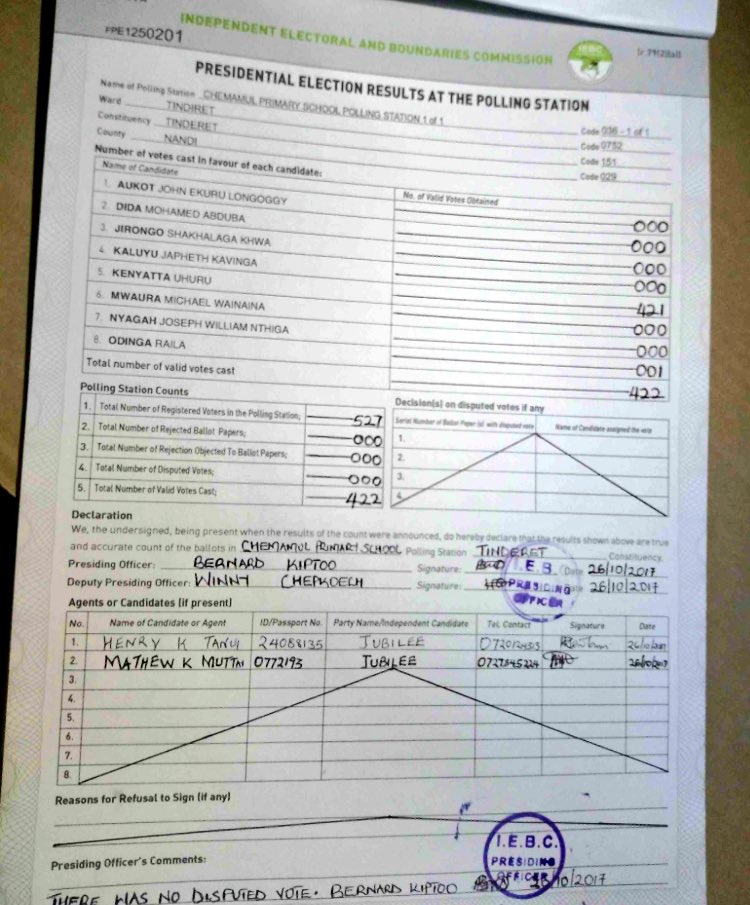 INDEPENDENT ELECTORAL AND BOUNDARIES COMMISSION
IEBC
FPE1250201
PRESIDENTIAL ELECTION RESULTS AT THE POLLING STATION
Name of Polling Station CHEMAMUL PRIMARY SCHOOL POLLING STATION 1 of 1 Code 036 - 1 of 1
Ward TINDIRET Code 0752
Constituency TINDERET Code 151
County NANDI Code 029
Number of votes cast in favour of each candidate:
Name of Candidate No. of Valid Votes Obtained
1. AUKOT JOHN EKURU LONGOGGY 000
2. DIDA MOHAMED ABDUBA 000
3. JIRONGO SHAKHALAGA KHWA 000
4. KALUYU JAPHETH KAVINGA 000
5. KENYATTA UHURU 421
6. MWAURA MICHAEL WAINAINA 000
7. NYAGAH JOSEPH WILLIAM NTHIGA 000
8. ODINGA RAILA 001
Total number of valid votes cast 422
Polling Station Counts
1. Total Number of Registered Voters in the Polling Station; 527
2. Total Number of Rejected Ballot Papers; 000
3. Total Number of Rejection Objected To Ballot Papers; 000
4. Total Number of Disputed Votes; 000
5. Total Number of Valid Votes Cast; 422
Decision(s) on disputed votes if any
Serial Number of Ballot Paper (s) with disputed vote Name of Candidate assigned the vote
1.
2.
3.
4.
Declaration
We, the undersigned, being present when the results of the count were announced, do hereby declare that the results shown above are true
and accurate count of the ballots in CHEMAMUL PRIMARY SCHOOL Polling Station TINDERET Constituency.
Presiding Officer: BERNARD KIPTOO Signature: Date 26/10/2017
Deputy Presiding Officer: WINNY CHEPKOECH Signature: Date 26/10/2017
I.E.B.
PRESIDING
OFFICER
Agents or Candidates (if present)
No. Name of Candidate or Agent ID/Passport No. Party Name/Independent Candidate Tel. Contact Signature Date
1. HENRY K TANUI 24088135 JUBILEE
2. MATHEW K MUTTAI 0772193 JUBILEE 0727345224 26/10/2017
3.
4.
5.
6.
7.
8.
Reasons for Refusal to Sign (if any)
I.E.B.C.
PRESIDING
OFFICER
Presiding Officer's Comments:
THERE WAS NO DISPUTED VOTE. BERNARD KIPTOO 26/10/2017